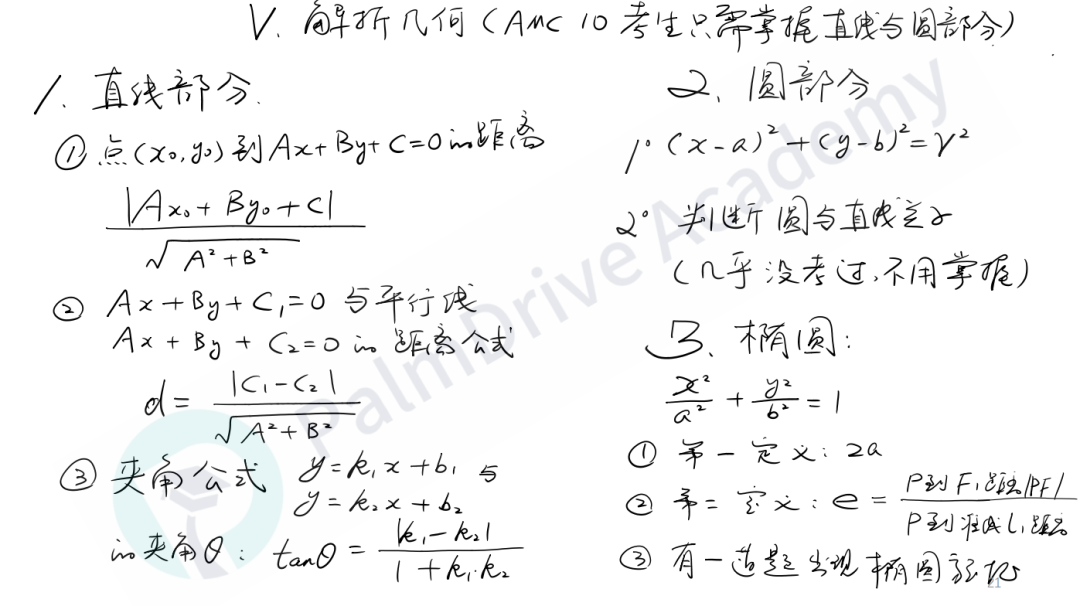 V. 解析几何（AMC 10 考生只需掌握直线与圆部分）
1. 直线部分.
① 点(x₀,y₀)到Ax+By+C=0的距离
|Ax₀+By₀+C|
√A²+B²
② Ax+By+C₁=0 与平行线
Ax+By+C₂=0 的距离公式
d= |C₁-C₂|
√A²+B²
③ 夹角公式 y=k₁x+b₁ 与
y=k₂x+b₂
的夹角θ: tanθ = |k₁-k₂|
1+k₁·k₂
2. 圆部分
1° (x-a)²+(y-b)²=r²
2° 判断圆与直线关系
（几乎没考过,不用掌握）
3. 椭圆:
x²/a² + y²/b² = 1
① 第一定义: 2a
② 第二定义: e = P到F₁距离|PF|
P到准线L₁距离
③ 有一道题出现椭圆
PalmDrive Academy
21